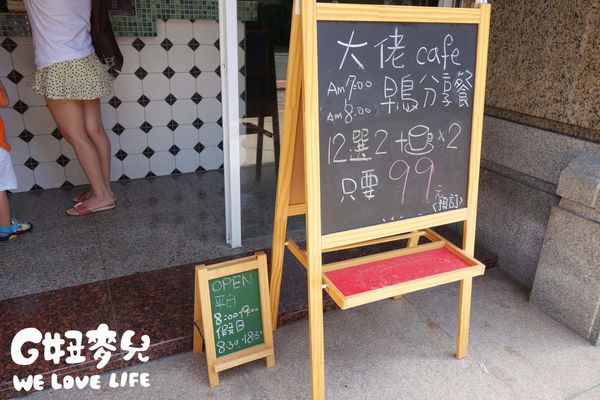 大佬 cafe
AM 7:00
AM 8:00
早鳥分享餐
12選2+ ×2
只要 99元
(預訂)
OPEN
平日
8:00-19:00
假日
8:30-18:30
G妞麥兒
WE LOVE LIFE